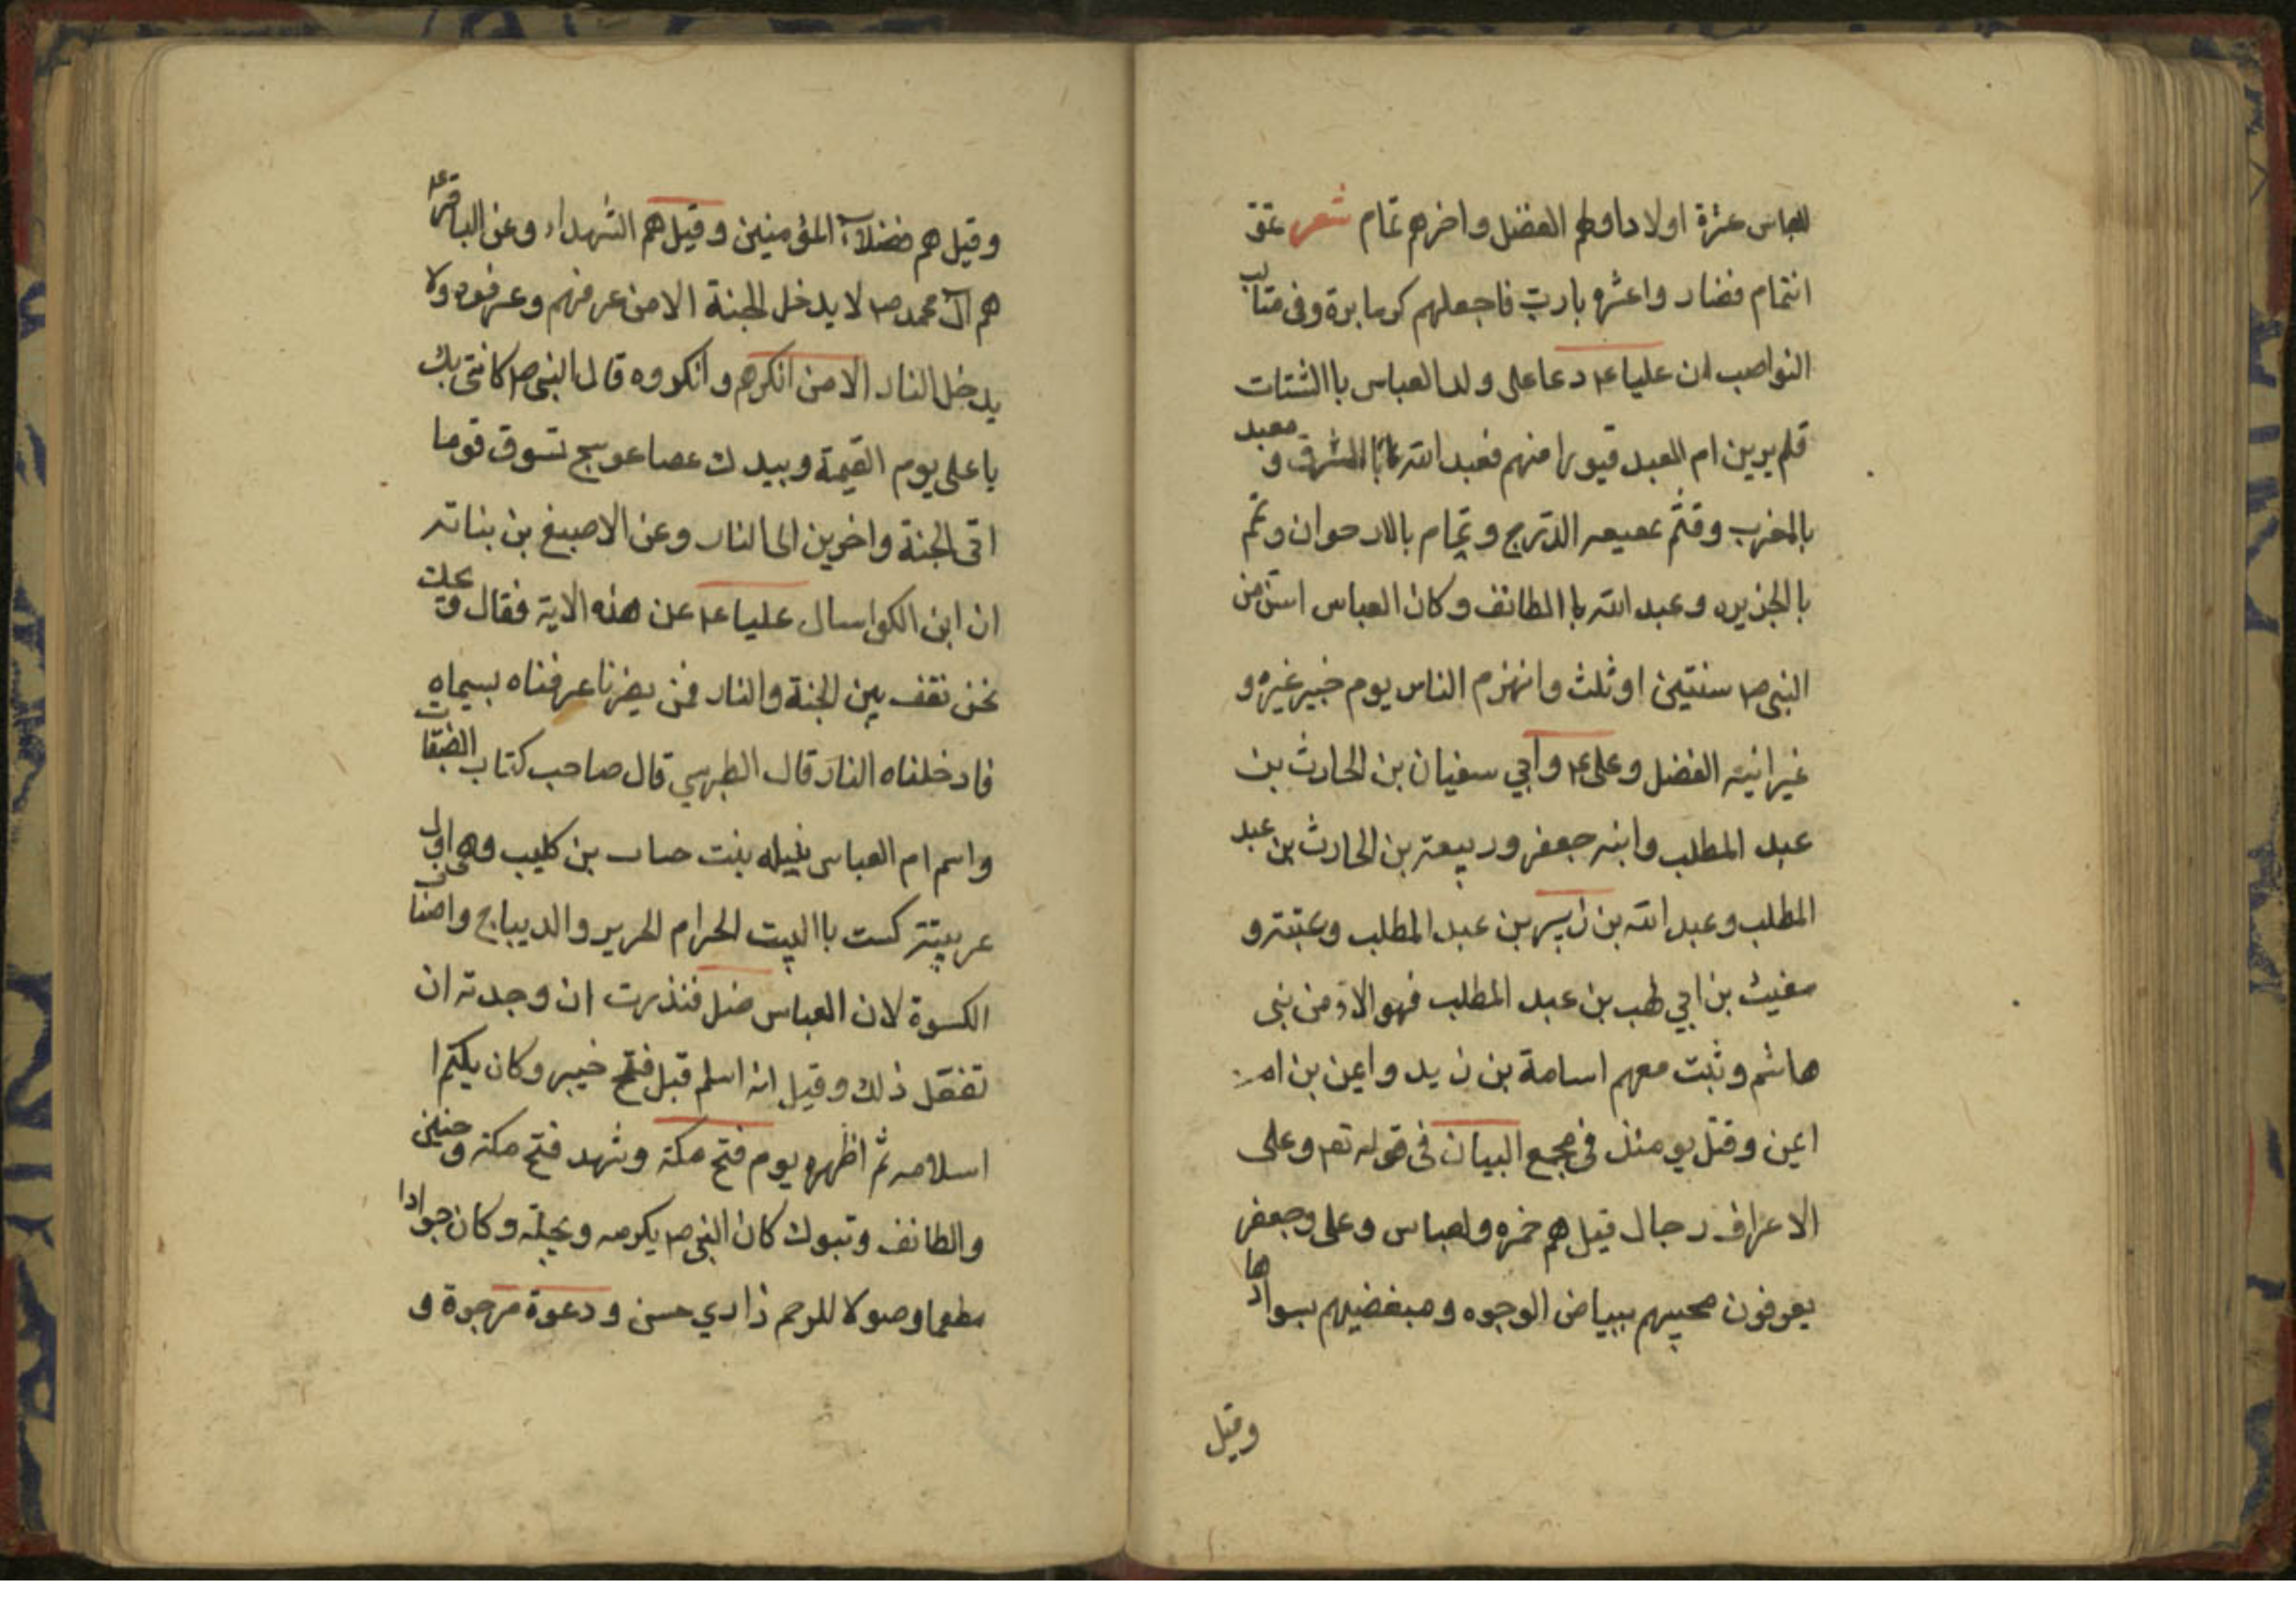 للعباس عشرة اولادا ولهم الفضل واخرهم تمام شعر
انتمام فضار واعشره يارب فاجعلهم كرما برة وفى متالب
النواصب ان عليا ع‍ دعا على ولد العباس باالشتات
فلم يرين ام ابعد قبورا منهم فعبد الله بالمشرق و معبد
بالمغرب وقثم الترج وتمام بالارحوان وثم
بالجزيره وعبد الله باالطائف وكان العباس اسن من
النبى ص‍ سنتين اوثلث وانهزم الناس يوم خيبر غيره و
غير ابنيه الفضل وعلى ع‍ وابي سفيان بن الحارث بن
عبد المطلب وابنه جعفر وربيعة بن الحارث بن عبد
المطلب وعبد الله بن زبير بن عبد المطلب وعتبة و
مغيث بن ابي لهب بن عبد المطلب فهولاء من بنى
هاشم وثبت معهم اسامة بن زيد وايمن بن ام
ايمن وقتل يومئذ فى مجمع البيان فى قوله تع‍ وعلى
الاعراف رجال قيل هم حمزه ولعباس وعلى وجعفر
يعرفون محبيهم ببياض الوجوه ومبغضيهم بسوادها
وقيل
وقيل هم فضلاء المؤمنين وقيل هم الشهداء وعن الباقر ع‍
هم آل محمد ص‍ لا يدخل الجنة الا من عرفهم وعرفوه ولا
يدخل النار الا من انكرهم وانكروه قال النبى ص‍ كانى بك
يا على يوم القيمة وبيدك عصا عوسج تسوق قوما
الى الجنة واخرين الى النار وعن الاصبغ بن بناته
ان ابن الكوا سال عليا ع‍ عن هذه الاية فقال ويحك
نحن نقف بين الجنة والنار فمن ينصرنا عرفناه بسيماه
فادخلناه النار قال الطبرسي قال صاحب كتاب الطبقات
واسم ام العباس نبيله بنت حباب بن كليب وهى اول
عربيتة كست باالبيت الحرام الحرير والديباج واصناف
الكسوة لان العباس ضل فنذرت ان وجدته ان
تفعل ذلك وقيل انه اسلم قبل فتح خيبر وكان يكتم ا
اسلامه ثم اظهره يوم فتح مكة وشهد فتح مكة وحنين
والطائف وتبوك كان النبى ص‍ يكرمه ويجلّه وكان جوادا
مطعما وصولا للرحم ذا راي حسن ودعوة مرجوة و